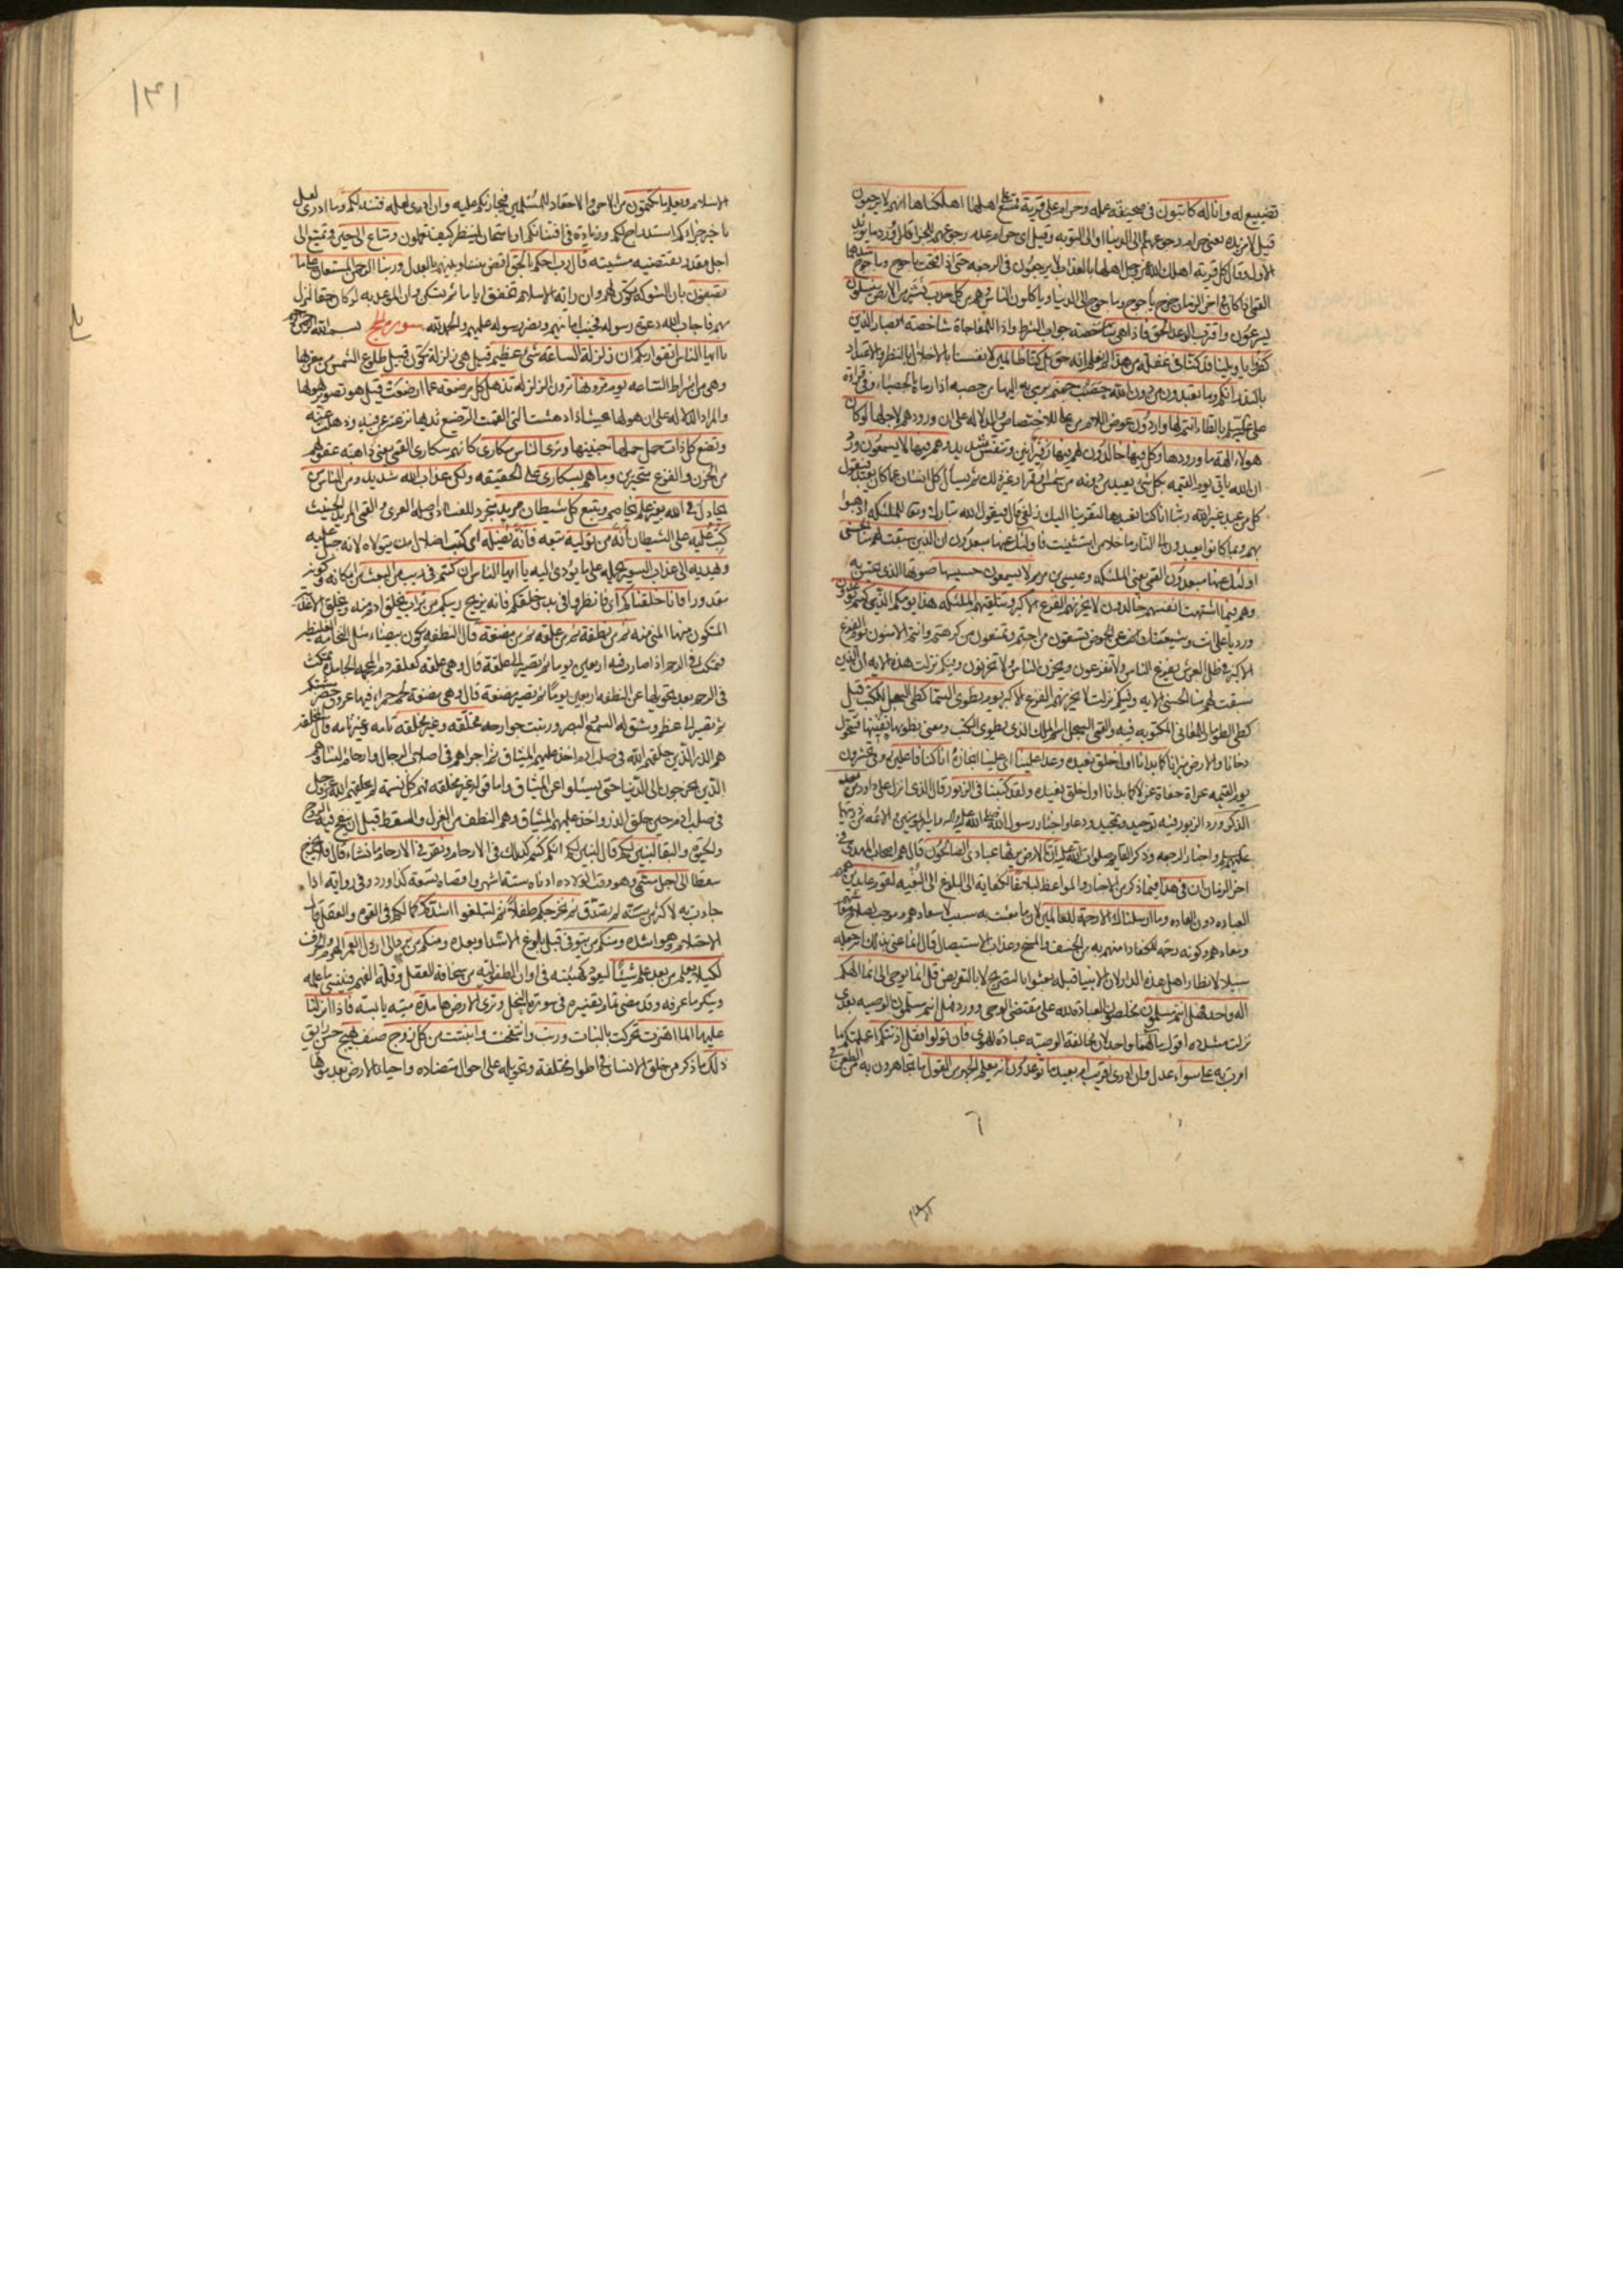 تضييع له وانا له كاتبون في صحيفة عمله وحرام على قرية ممتنع على اهلها اهلكناها انهم لا يرجعون
قيل لا مزيدة يعني حرام رجوعهم الى الدنيا او الى التوبة وقيل اي حرام عدم رجوعهم للجزاء
الاول وقال كل قرية اهلك الله عز وجل اهلها بالعذاب لا يرجعون في الرجعة حتى اذا فتحت ياجوج وماجوج
القمي اذا كان في اخر الزمان خرج ياجوج وماجوج الى الدنيا وياكلون الناس وهم من كل حدب نشز من الارض ينسلون
يسرعون واقترب الوعد الحق فاذا هي شاخصة جواب الشرط واذا للمفاجاة شاخصة ابصار الذين
كفروا يا ويلنا قد كنا في غفلة من هذا لم نعلم انه حق بل كنا ظالمين لانفسنا بالاخلال بالنظر والاعتداد
بالنذر انكم وما تعبدون من دون الله حصب جهنم يرمى به اليها من حصبه اذا رماه بالحصباء وفي قراءة
علي بالطاء انتم لها واردون عوض اللام من على للاختصاص والدلالة على ان ورودهم لاجلها لو كان
هؤلاء الهة ما وردوها وكل فيها خالدون لهم فيها زفير انين وتنفس شديد وهم فيها لا يسمعون
ان الله ياتي يوم القيمة بكل شئ يعبد من دونه من شمس او قمر او غير ذلك ثم يسأل كل انسان عما كان يعبد فيقول
كل من عبد غير الله ربنا انا كنا نعبدها لتقربنا اليك زلفى قال فيقول الله تبارك وتعالى للملئكة اذهبوا
بهم وبما كانوا يعبدون الى النار ما خلا من استثنيت فاولئك عنها مبعدون ان الذين سبقت لهم منا الحسنى
اولئك عنها مبعدون القمي يعني الملئكة وعيسى بن مريم لا يسمعون حسيسها صوتها الذي يحس به
وهم فيما اشتهت انفسهم خالدون لا يحزنهم الفزع الاكبر وتتلقيهم الملئكة هذا يومكم الذي كنتم توعدون
ورد يا علي انت وشيعتك على الحوض تسقون من احببتم وتمنعون من كرهتم وانتم الامنون يوم الفزع
الاكبر في ظل العرش يفزع الناس ولا تفزعون ويحزن الناس ولا تحزنون وفيكم نزلت هذه الاية ان الذين
سبقت لهم منا الحسنى الاية وفيكم نزلت لا يحزنهم الفزع الاكبر يوم نطوي السماء كطي السجل للكتب قيل
كطي الطومار للمعاني المكتوبة فيه والقمي السجل اسم الملك الذي يطوي الكتب ومعنى نطويها نفنيها فتتحول
دخانا والارض نيرانا كما بدانا اول خلق نعيده وعدا علينا اي علينا انجازه انا كنا فاعلين
يوم القيمة عراة حفاة غرلا كما بدانا اول خلق نعيده ولقد كتبنا في الزبور قال الذي انزل على داود من بعد
الذكر ورد الزبور فيه توحيد وتمجيد ودعاء واخبار رسول الله صلى الله عليه واله وامير المؤمنين والائمة من ذريتهما
عليهم السلام واخبار الرجعة وذكر القائم صلوات الله عليه ان الارض يرثها عبادي الصالحون قال هم اصحاب المهدي في
اخر الزمان ان في هذا فيما ذكر من الاخبار والمواعظ لبلاغا لكفاية الى البلوغ الى البغية لقوم عابدين همهم
العبادة دون العادة وما ارسلناك الا رحمة للعالمين لان ما بعثت به سبب لاسعادهم وموجب لصلاح معاشهم
ومعادهم وكونه رحمة للكفار امنهم به من الخسف والمسخ وعذاب الاستيصال قال انما عنى بذلك انه جعله
سبيلا لانظار اهل هذه الدار لان الانبياء قبله بعثوا بالتصريح لا بالتعريض قل انما يوحى الي انما الهكم
اله واحد فهل انتم مسلمون مخلصون العبادة لله على مقتضى الوحي وورد فهل انتم مسلمون الوصية بعدي
نزلت مشددة اقول مالهما واحد لان مخالفة الوصية عبادة للهوى فان تولوا فقل اذنتكم اعلمتكم ما
امرت به على سواء عدل وان ادري اقريب ام بعيد ما توعدون انه يعلم الجهر من القول ما تجاهرون به من الطعن في
اسلام
١٣١
الاسلام ويعلم ما تكتمون من الاحن والاحقاد للمسلمين فيجازيكم عليه وان ادري لعله فتنة لكم وما ادري لعل
تاخير جزائكم استدراج لكم وزيادة في افتتانكم او امتحان لينظر كيف تعملون ومتاع الى حين وتمتيع الى
اجل مقدر تقتضيه مشيته قال رب احكم بالحق اقض بيننا وبينهم بالعدل وربنا الرحمن المستعان على ما
تصفون بان الشوكة تكون لهم وان راية الاسلام تخفق اياما ثم تسكن وان الموعد به لو كان حقا لنزل
بهم فاجاب الله دعوة رسوله فخيب امانيهم ونصر رسوله عليهم والحمد لله سورة الحج بسم الله الرحمن الرحيم
يا ايها الناس اتقوا ربكم ان زلزلة الساعة شئ عظيم قيل هي زلزلة تكون قبيل طلوع الشمس من مغربها
وهي من اشراط الساعة يوم ترونها ترون الزلزلة تذهل كل مرضعة عما ارضعت قيل هو تصوير لهولها
والمراد الدلالة على ان هولها بحيث اذا دهشت التي القمت الرضيع ثديها نزعته عن فيه وذهلت عنه
وتضع كل ذات حمل حملها جنينها وترى الناس سكارى كانهم سكارى القمي يعني ذاهبة عقولهم
من الحزن والفزع متحيرين وما هم بسكارى على الحقيقة ولكن عذاب الله شديد ومن الناس من
يجادل في الله بغير علم يخاصم ويتبع كل شيطان مريد متجرد للفساد واصله العري والقمي المريد الخبيث
كتب عليه على الشيطان انه من تولاه تبعه فانه يضله اي كتب اضلال من يتولاه لانه جبل عليه
ويهديه الى عذاب السعير بحمله على ما يؤدي اليه يا ايها الناس ان كنتم في ريب من البعث من امكانه وكونه
مقدورا فانا خلقناكم اي فانظروا في بدء خلقكم فانه يزيح ريبكم من تراب بخلق ادم منه وبخلق الاغذية
المتكون منها المني منه ثم من نطفة ثم من علقة ثم من مضغة قال النطفة تكون بيضاء مثل النخامة الغليظة
فتمكث في الرحم اذا صارت فيه اربعين يوما ثم تصير الى علقة قال وهي علقة كعلقة دم المحجمة الجامدة تمكث
في الرحم بعد تحويلها عن النطفة اربعين يوما ثم تصير مضغة قال وهي مضغة لحم حمراء فيها عروق خضر مشتبكة
ثم تصير الى عظم وشق له السمع والبصر ورتبت جوارحه مخلقة وغير مخلقة تامة وغير تامة قال المخلقة
هم الذر الذين خلقهم الله في صلب ادم اخذ عليهم الميثاق ثم اجراهم في اصلاب الرجال وارحام النساء وهم
الذين يخرجون الى الدنيا حتى يسئلوا عن الميثاق واما قوله غير مخلقة فهم كل نسمة لم يخلقهم الله عز وجل
في صلب ادم حين خلق الذر واخذ عليهم الميثاق وهم النطف من العزل والسقط قبل ان ينفخ فيه الروح
والحيوة والبقاء لنبين لكم قال لنبين لكم انكم كنتم كذلك في الارحام ونقر في الارحام ما نشاء قال فلا يخرج
سقطا الى اجل مسمى وهو وقت الولادة ادناه ستة اشهر واقصاه تسعة كذا ورد وفي رواية اذا
جاءت به لاكثر من سنة لم تصدق ثم نخرجكم طفلا ثم لتبلغوا اشدكم كمالكم في القوة والعقل قال
الاحتلام وهو اشده ومنكم من يتوفى قبل بلوغ الاشد او بعده ومنكم من يرد الى ارذل العمر الهرم والخرف
لكيلا يعلم من بعد علم شيئا ليعود كهيئته في اوان الطفولية من سخافة العقل وقلة الفهم فينسى ما علمه
وينكر ما عرفه وقد مضى تمام تفسيره في سورة النحل وترى الارض هامدة ميتة يابسة فاذا انزلنا
عليها الماء اهتزت تحركت بالنبات وربت وانتفخت وانبتت من كل زوج صنف بهيج حسن رايق
ذلك ما ذكر من خلق الانسان في اطوار مختلفة وتحويله على احوال متضادة واحياء الارض بعد موتها